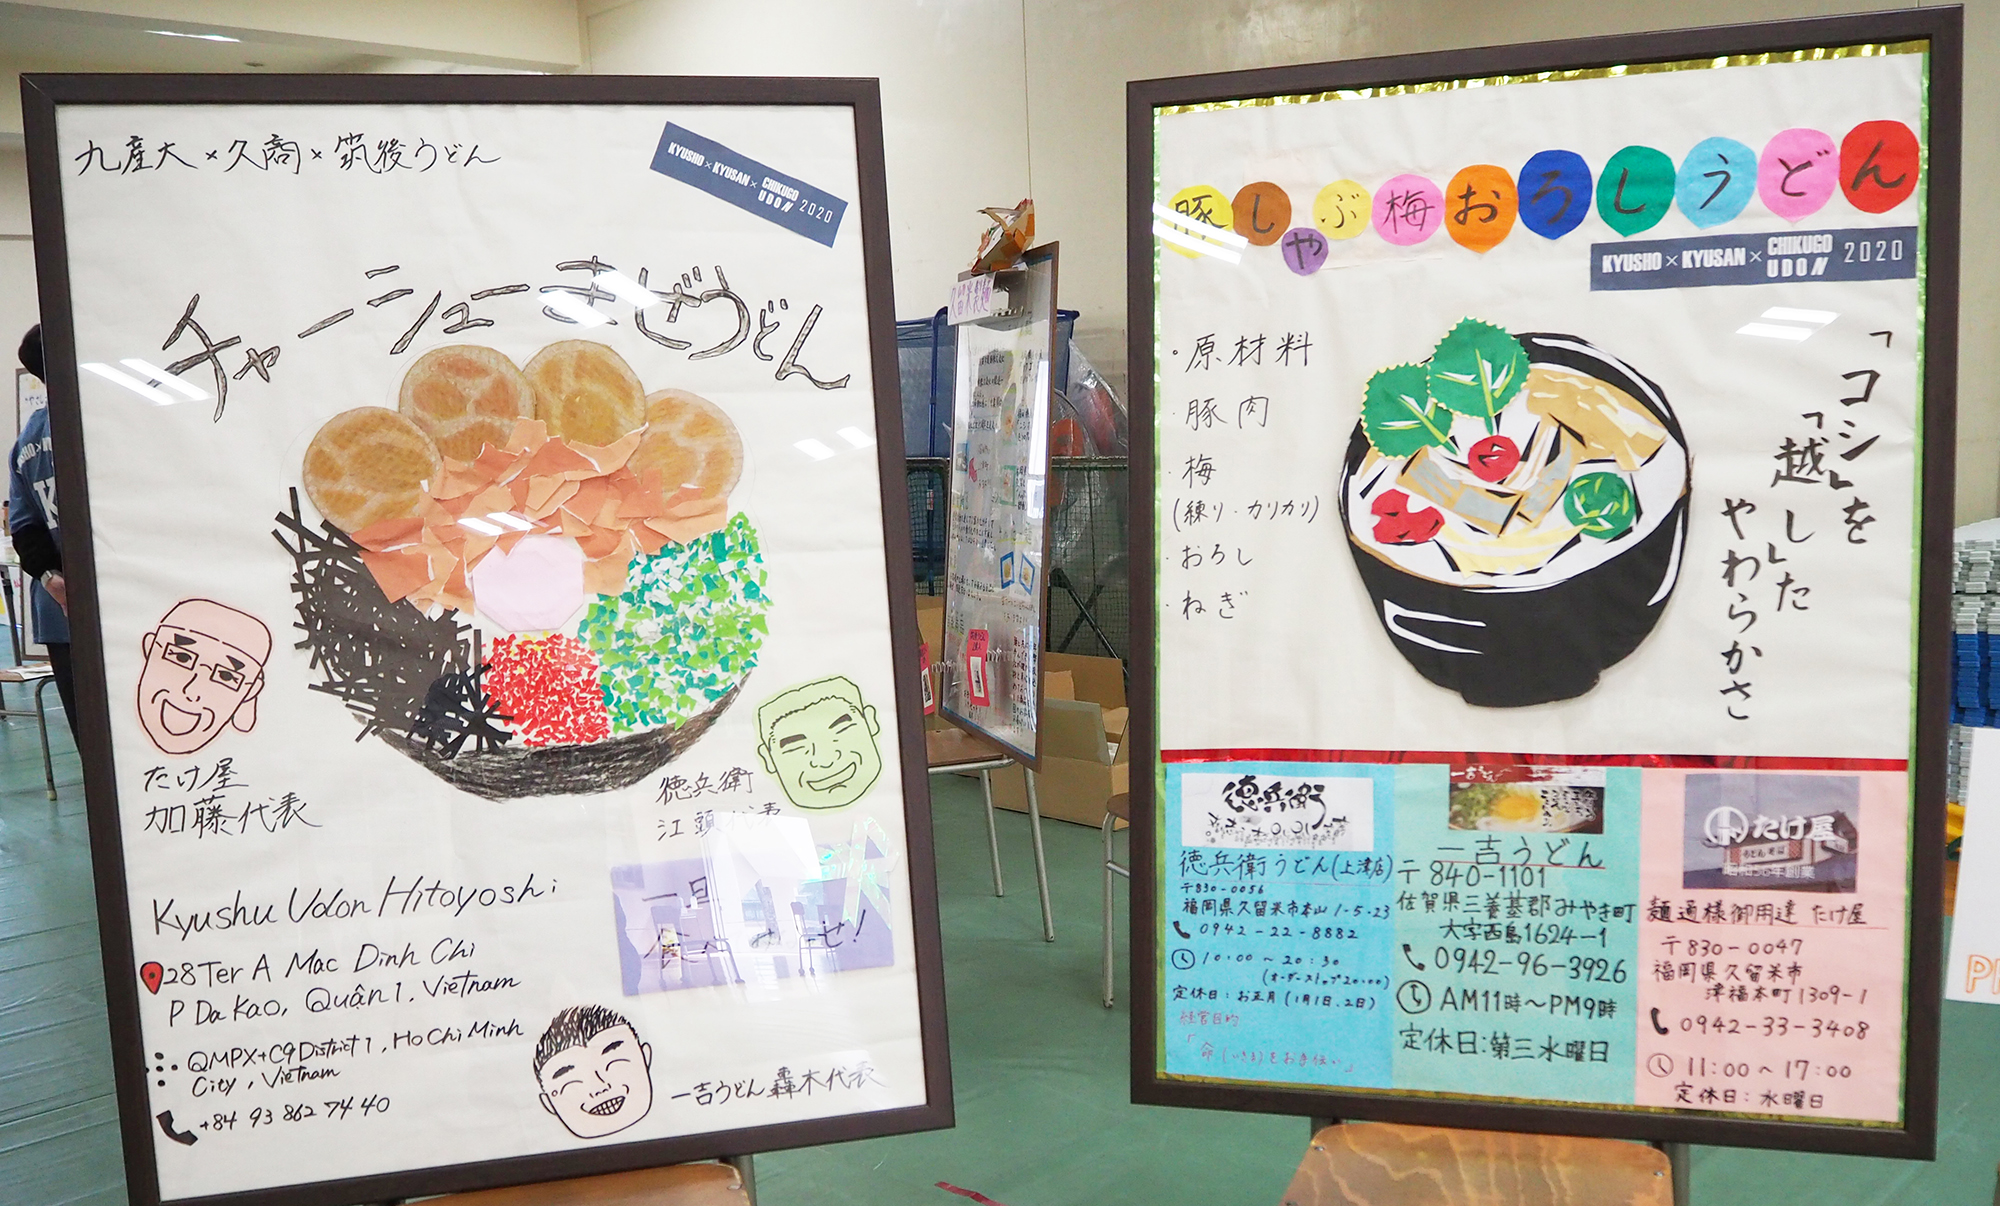 九産大×久商×筑後うどん
KYUSHO×KYUSAN×CHIKUGO UDON 2020
チャーシューまぜうどん
たけ屋
加藤代表
徳兵衛
江頭代表
Kyushu Udon Hitoyoshi
28 Ter A Mac Dinh Chi
P Da Kao, Quận 1, Vietnam
QMPX+C9 District 1, Ho Chi Minh
City, Vietnam
+84 93 862 74 40
一吉うどん 轟木代表
久留米製麺
豚しゃぶ梅おろしうどん
KYUSHO×KYUSAN×CHIKUGO UDON 2020
・原材料
・豚肉
・梅
(練り・カリカリ)
・おろし
・ねぎ
「コシ」を
「越し」た
やわらかさ
徳兵衛
徳兵衛うどん(上津店)
〒830-0056
福岡県久留米市本山1-5-23
0942-22-8882
10:00~20:30
(オーダーストップ20:00)
定休日:お正月(1月1日.2日)
経営目的
「命(いきる)をお手伝い」
一吉うどん
〒840-1101
佐賀県三養基郡みやき町
大字西島1624-1
0942-96-3926
AM11時~PM9時
定休日:第三水曜日
たけ屋
うどん そば
昭和56年創業
麺通様御用達 たけ屋
〒830-0047
福岡県久留米市
津福本町1309-1
0942-33-3408
11:00~17:00
定休日:水曜日